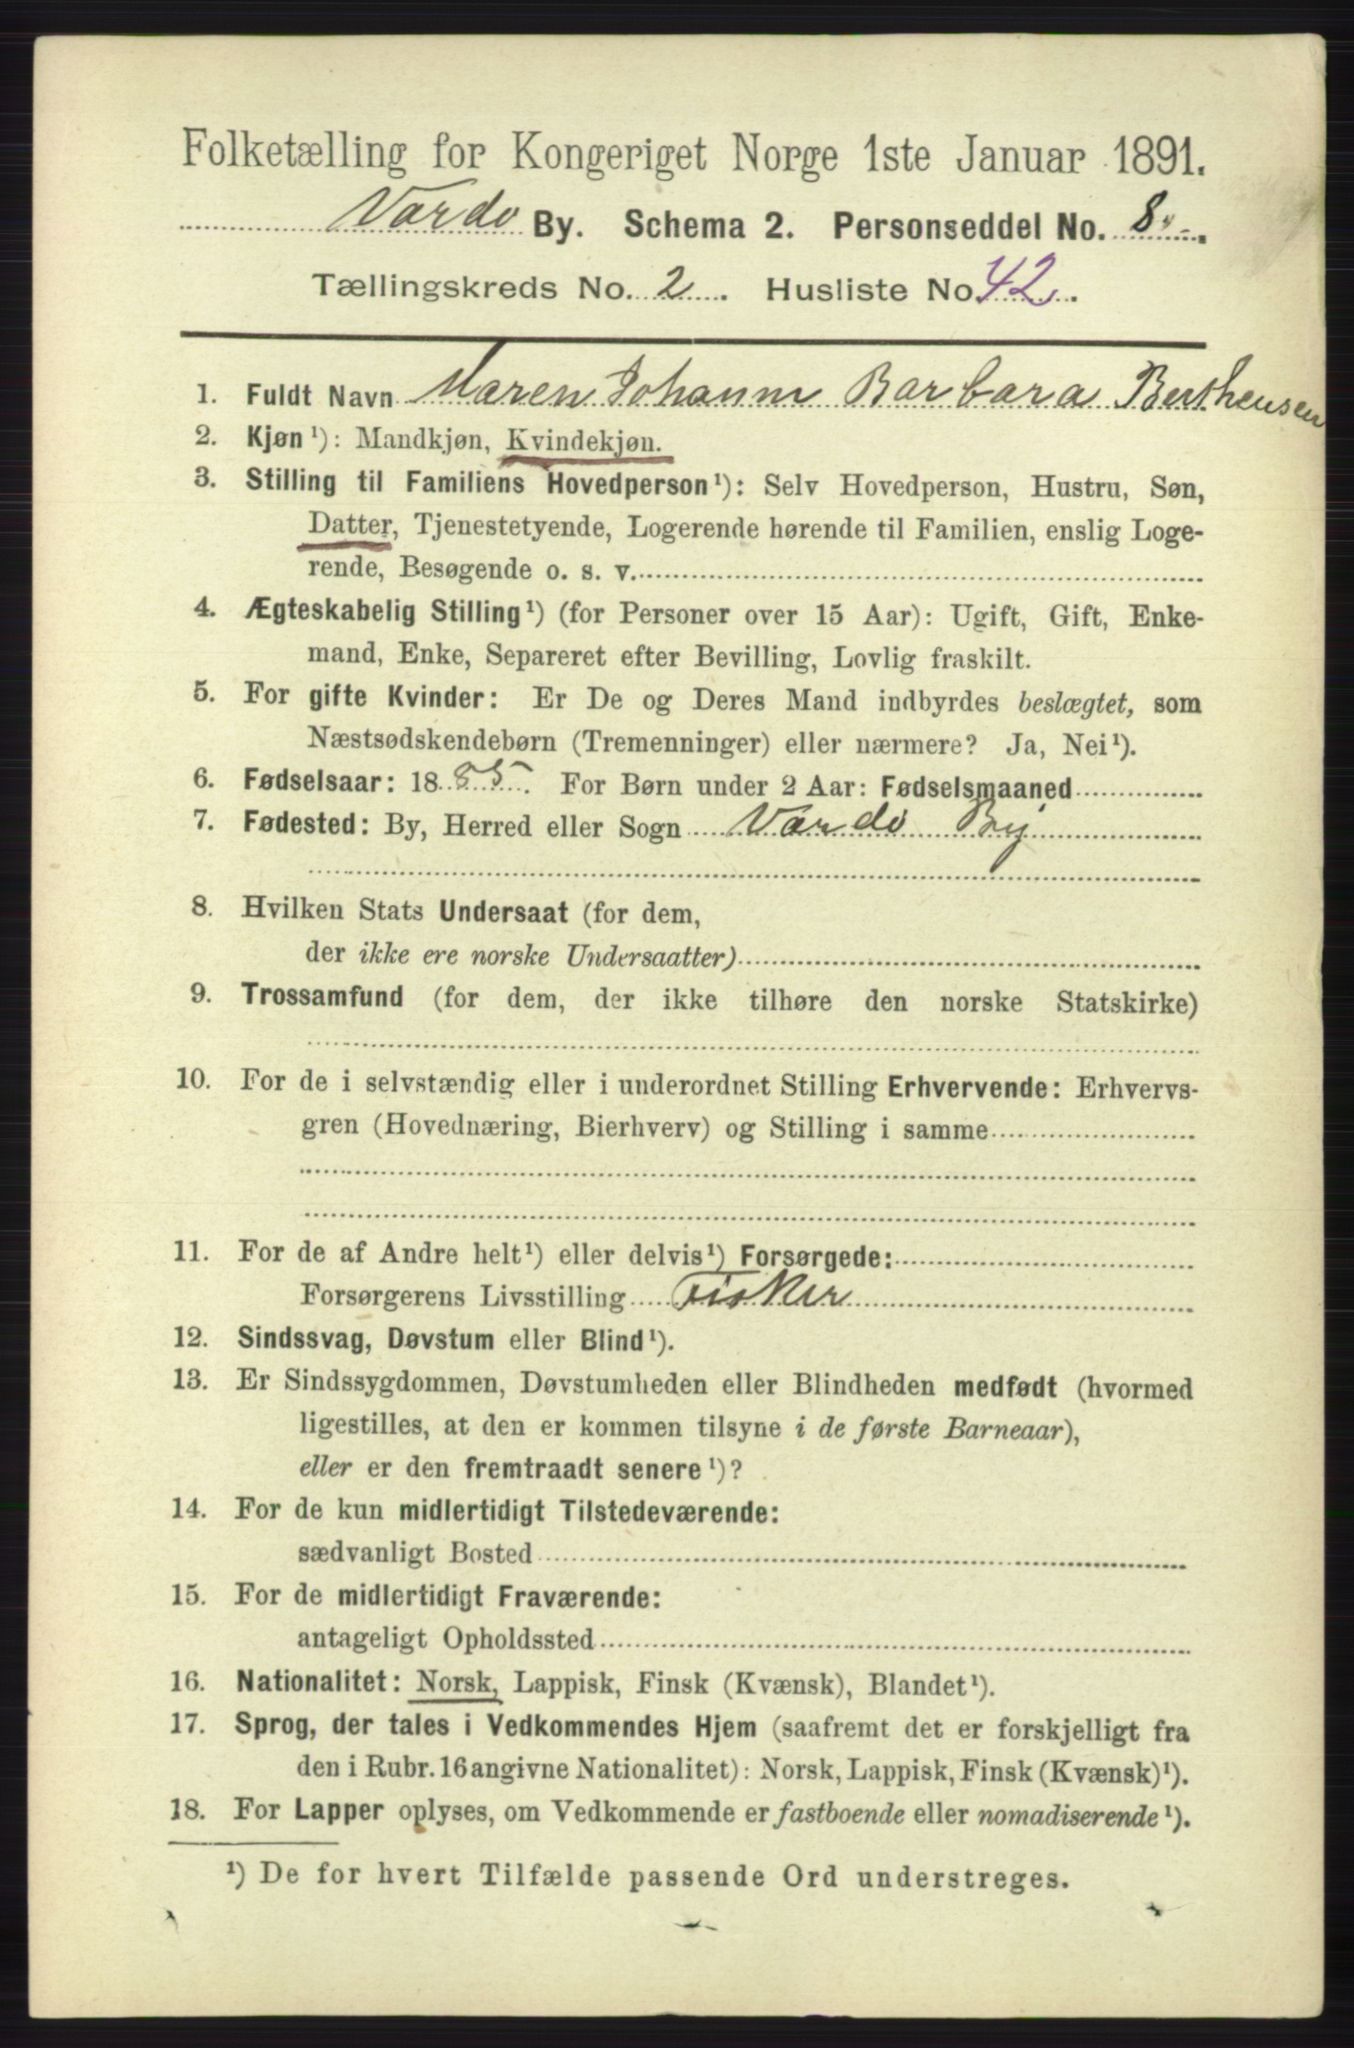 Folketælling for Kongeriget Norge 1ste Januar 1891.
Vardø By. Schema 2. Personseddel No. 8.
Tællingskreds No. 2. Husliste No 42.
1. Fuldt Navn Maren Johanne Barbara Berthensen
2. Kjøn¹): Mandkjøn, Kvindekjøn.
3. Stilling til Familiens Hovedperson¹): Selv Hovedperson, Hustru, Søn,
Datter, Tjenestetyende, Logerende hørende til Familien, enslig Loge-
rende, Besøgende o. s. v.
4. Ægteskabelig Stilling¹) (for Personer over 15 Aar): Ugift, Gift, Enke-
mand, Enke, Separeret efter Bevilling, Lovlig fraskilt.
5. For gifte Kvinder: Er De og Deres Mand indbyrdes beslægtet, som
Næstsødskendebørn (Tremenninger) eller nærmere? Ja, Nei¹).
6. Fødselsaar: 1885. For Børn under 2 Aar: Fødselsmaaned
7. Fødested: By, Herred eller Sogn Vardø By
8. Hvilken Stats Undersaat (for dem,
der ikke ere norske Undersaatter)
9. Trossamfund (for dem, der ikke tilhøre den norske Statskirke)
10. For de i selvstændig eller i underordnet Stilling Erhvervende: Erhvervs-
gren (Hovednæring, Bierhverv) og Stilling i samme
11. For de af Andre helt¹) eller delvis¹) Forsørgede:
Forsørgerens Livsstilling Fisker
12. Sindssvag, Døvstum eller Blind¹).
13. Er Sindssygdommen, Døvstumheden eller Blindheden medfødt (hvormed
ligestilles, at den er kommen tilsyne i de første Barneaar),
eller er den fremtraadt senere¹)?
14. For de kun midlertidigt Tilstedeværende:
sædvanligt Bosted
15. For de midlertidigt Fraværende:
antageligt Opholdssted
16. Nationalitet: Norsk, Lappisk, Finsk (Kvænsk), Blandet¹).
17. Sprog, der tales i Vedkommendes Hjem (saafremt det er forskjelligt fra
den i Rubr. 16 angivne Nationalitet): Norsk, Lappisk, Finsk (Kvænsk)¹).
18. For Lapper oplyses, om Vedkommende er fastboende eller nomadiserende¹).
¹) De for hvert Tilfælde passende Ord understreges.